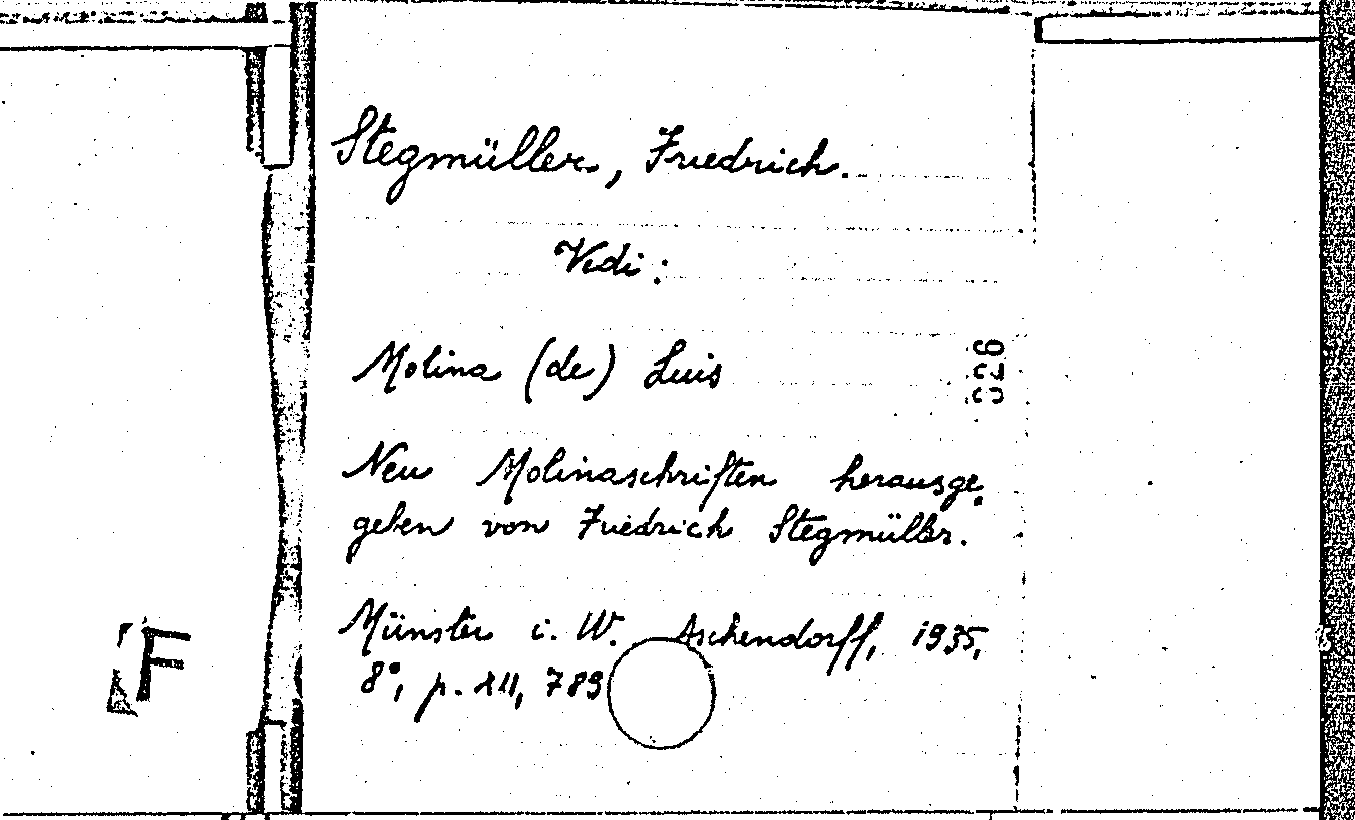 Stegmüller, Friedrich.
Vedi:
Molina (de) Luis
Neu Molinaschriften herausge.
geben von Friedrich Stegmüller.
Münster i. W. Aschendorff, 1935,
8°, p. XII, 789
F